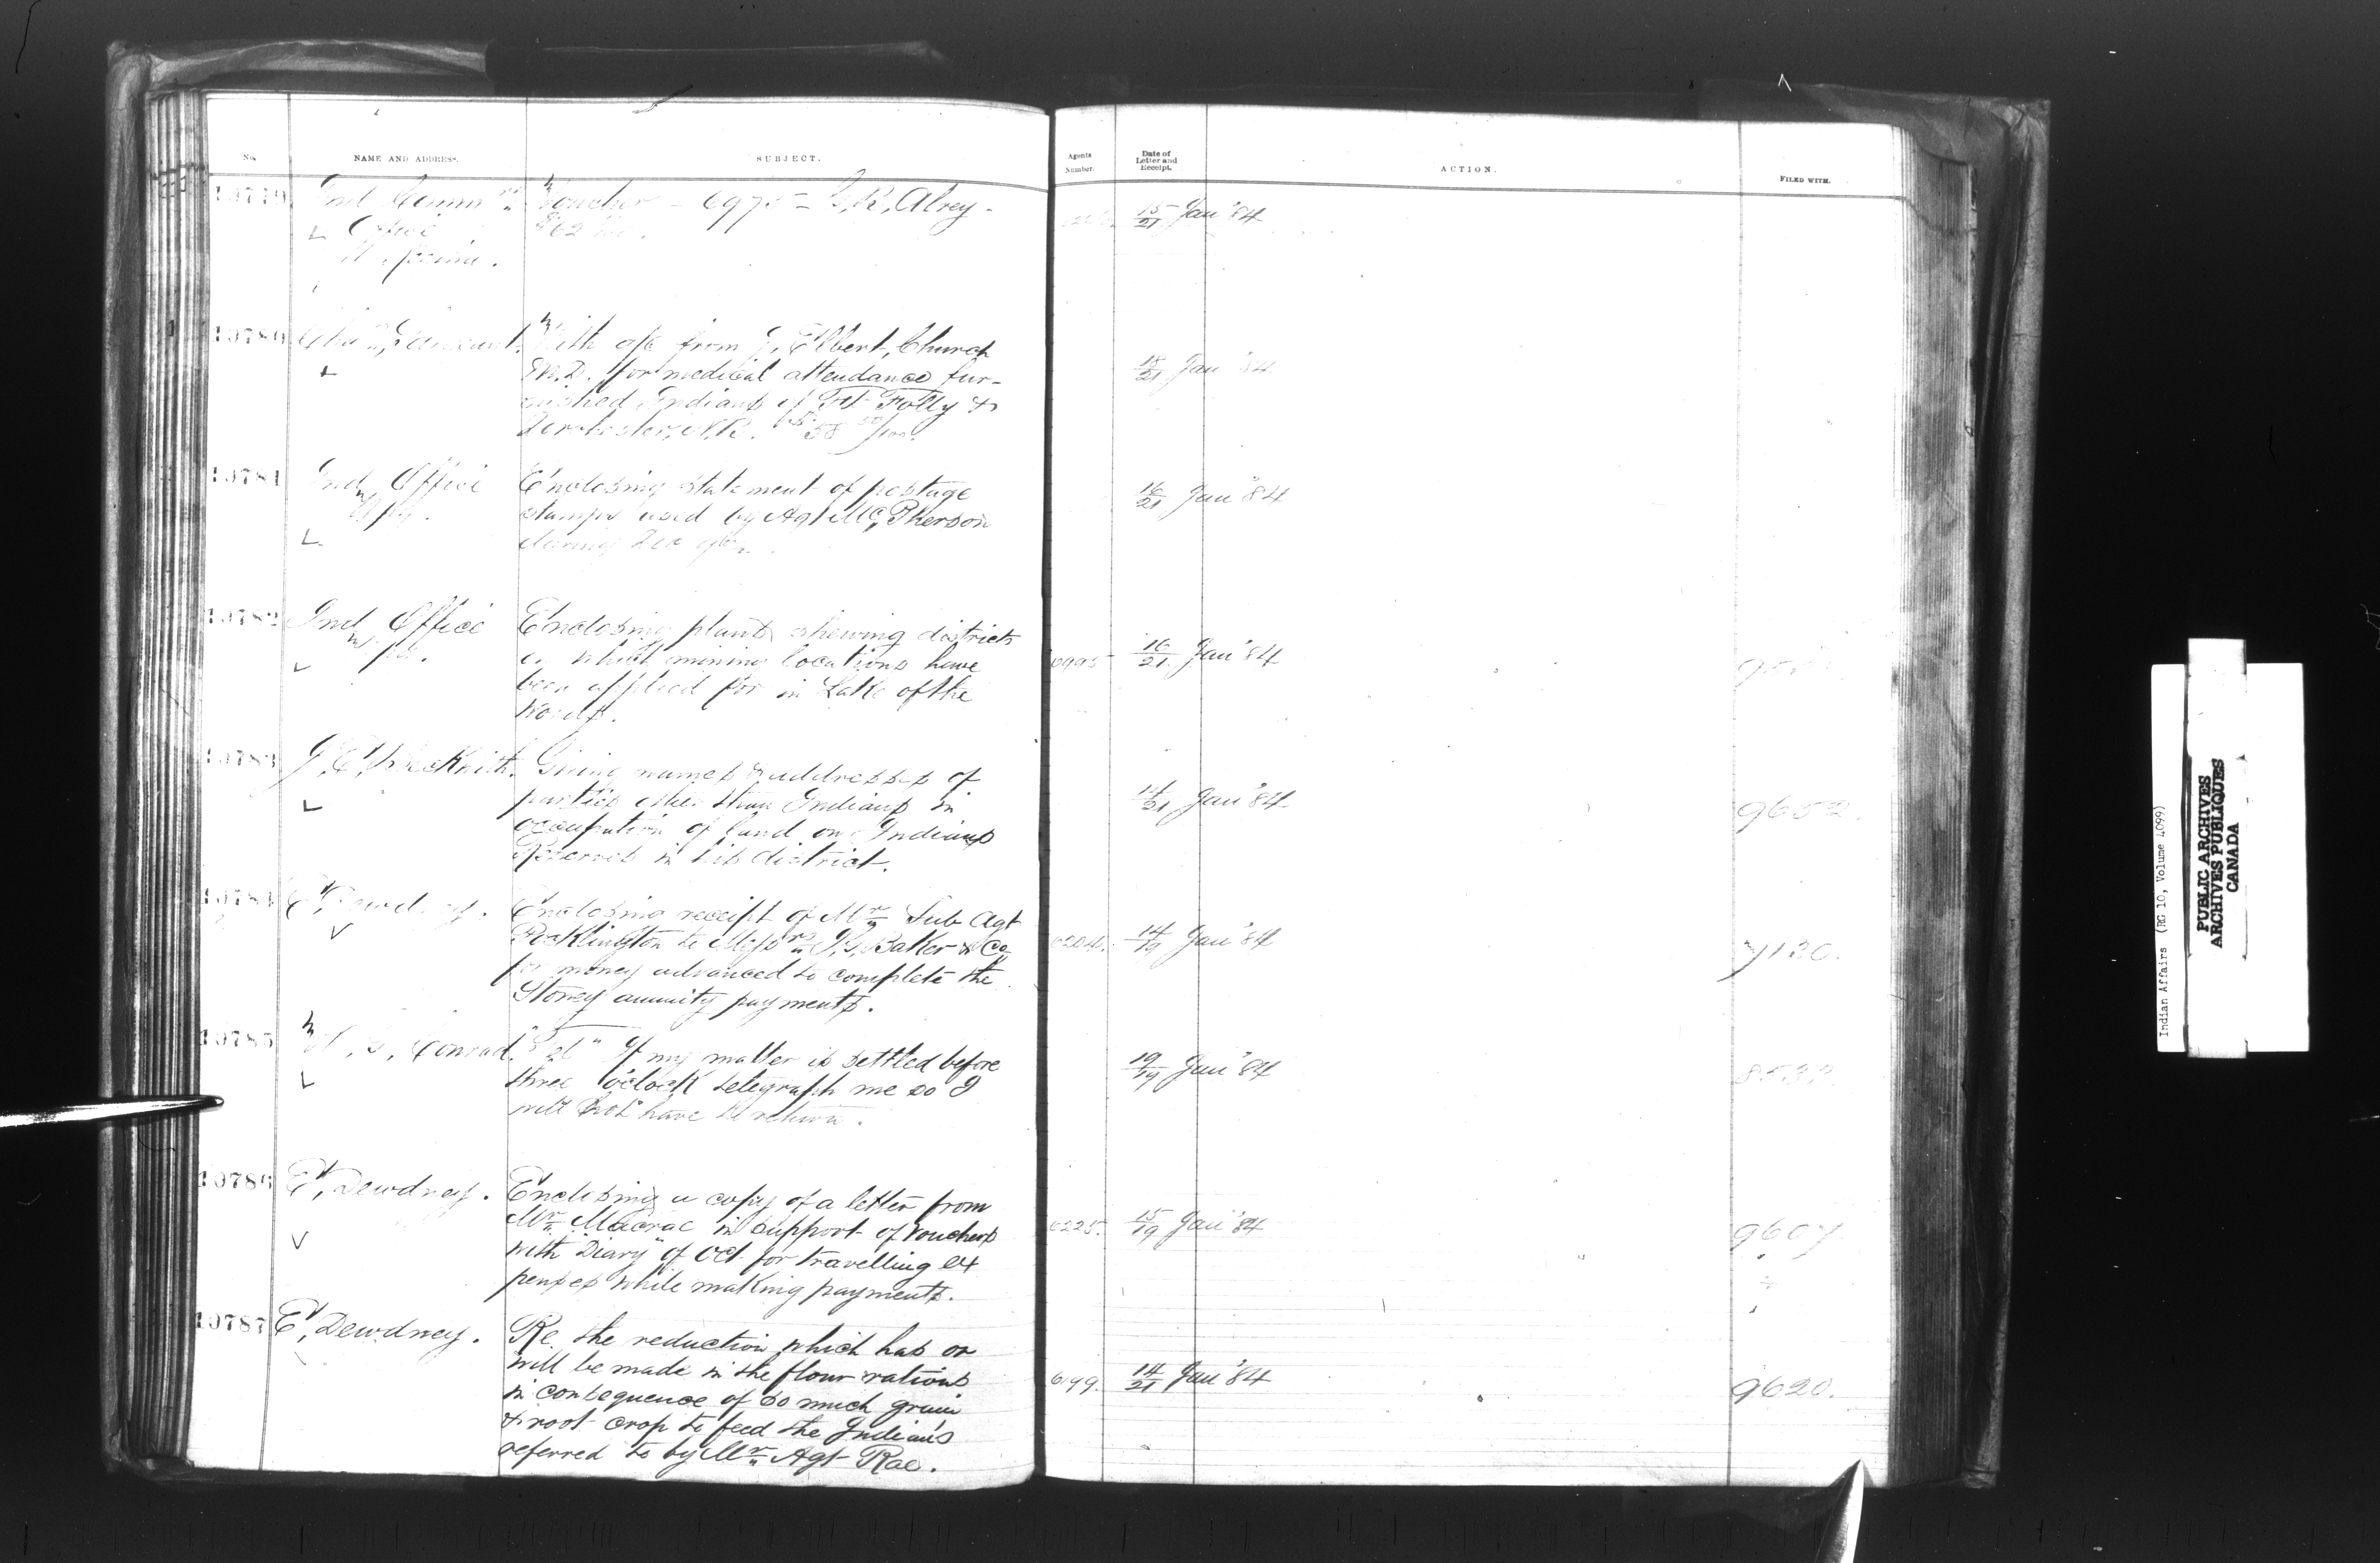 No. NAME AND ADDRESS. SUBJECT. Agents Number. Date of Letter and Receipt. ACTION. FILED WITH.
10779 Voucher - 6975 - Alrey - 15/21 Jan '84
Office
Regina.
10780 With a/c from J, Elbert, Church 18/21 Jan '84
M.D. for medical attendance fur-
nished Indians of Ft Folly &
Dorchester, N.B. $58 50/100.
10781 Ind Office Enclosing statement of postage 16/21 Jan '84
Wpg. stamps used by Agt McPherson
during Dec
10782 Ind Office Enclosing plans shewing districts 6995 16/21 Jan '84
Wpg. in which mining locations have
been applied for in Lake of the
Woods.
10783 J, E, Beckwith. Giving names & addresses of 14/21 Jan '84 9652.
parties other than Indians in
occupation of land on Indians
Reserves in his district.
10784 E, Dewdney. Enclosing receipt of Mr Sub Agt 6204. 14/19 Jan '84 7130.
Pocklington to Messrs I, G, Baker & Co
for money advanced to complete the
Stoney annuity payments.
10785 Conrad. "Tel" If my matter is settled before 19/19 Jan '84
three o'clock telegraph me so I
will not have to return.
10786 E, Dewdney. Enclosing a copy of a letter from 6225. 15/19 Jan '84 9607.
Mr Macrae in support of vouchers
with "Diary" of Oct for travelling ex
penses while making payments.
10787 E, Dewdney. Re. the reduction which has or 6199. 14/21 Jan '84 9620.
will be made in the flour rations
in consequence of so much grain
& root crop to feed the Indians
referred to by Mr Agt Rae.
Indian Affairs (RG 10, Volume 4099)
PUBLIC ARCHIVES
ARCHIVES PUBLIQUES
CANADA